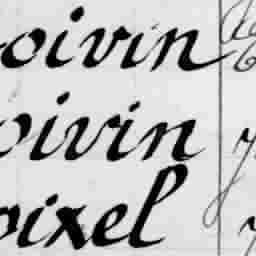 oivin
oivin
oixel